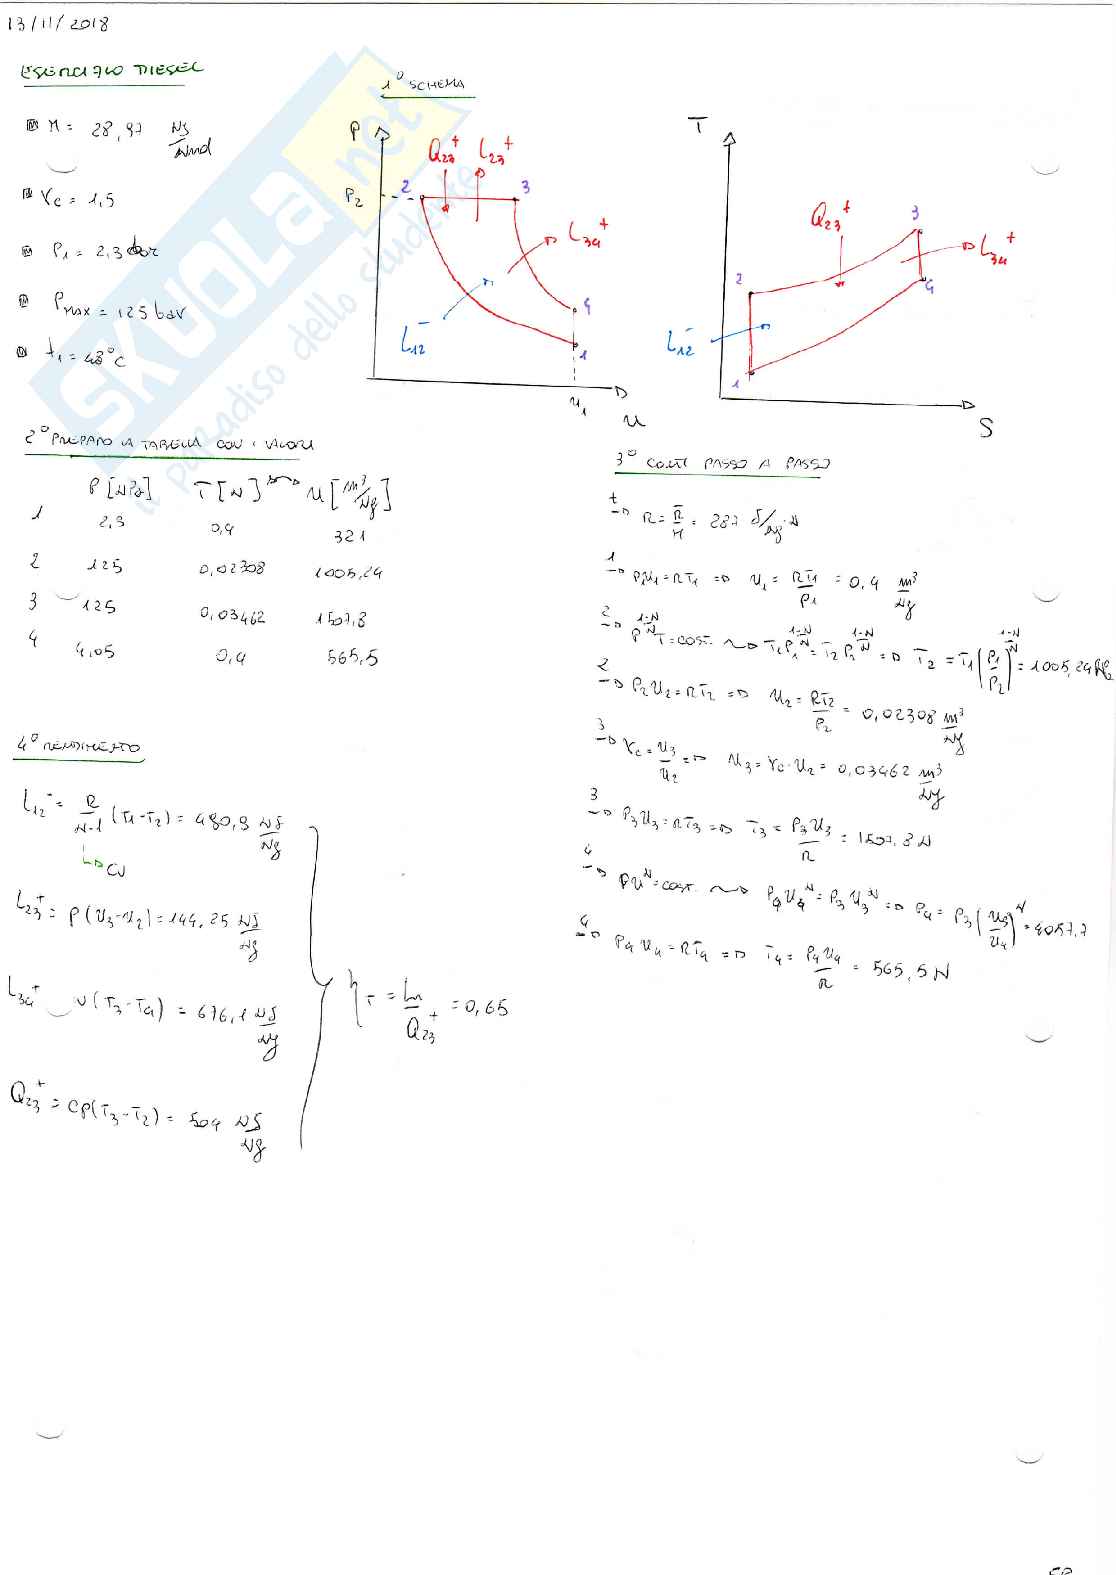 13/11/2018
ESERCIZIO DIESEL
M = 28,97 kg/kmol
rc = 1,5
P1 = 2,3 bar
Pmax = 125 bar
t1 = 48°C
1° SCHEMA
P
P2
2
Q23+
L23+
3
L34+
L12-
4
1
u1
u
T
Q23+
3
L34+
2
4
L12-
1
S
2° PREPARO LA TABELLA CON I VALORI
P [kPa] T [K] u [m³/kg]
1 2,3 0,4 321
2 125 0,02308 1005,24
3 125 0,03462 1507,8
4 4,05 0,4 565,5
3° CONTI PASSO A PASSO
t → R = R̄/M = 287 J/kg·K
1 → P1u1 = RT1 ⇒ u1 = RT1/P1 = 0,4 m³/kg
2 → P^(1-K/K) T = cost. ⇝ T1P1^(1-K/K) = T2P2^(1-K/K) ⇒ T2 = T1(P1/P2)^(1-K/K) = 1005,24
2 → P2u2 = RT2 ⇒ u2 = RT2/P2 = 0,02308 m³/kg
3 → rc = u3/u2 ⇒ u3 = rc · u2 = 0,03462 m³/kg
3 → P3u3 = RT3 ⇒ T3 = P3u3/R = 1507,8 K
4 → Pu^K = cost. ⇝ P4u4^K = P3u3^K ⇒ P4 = P3(u3/u4)^K = 4057,7
4 → P4u4 = RT4 ⇒ T4 = P4u4/R = 565,5 K
4° RENDIMENTO
L12- = R/K-1 (T1-T2) = 490,9 kJ/kg
CV
L23+ = P(u3-u2) = 144,25 kJ/kg
L34+ v(T3-T4) = 676,1 kJ/kg
Q23+ = cp(T3-T2) = 504 kJ/kg
ηT = Ln/Q23+ = 0,65
SKUOLA.net
il paradiso dello studente